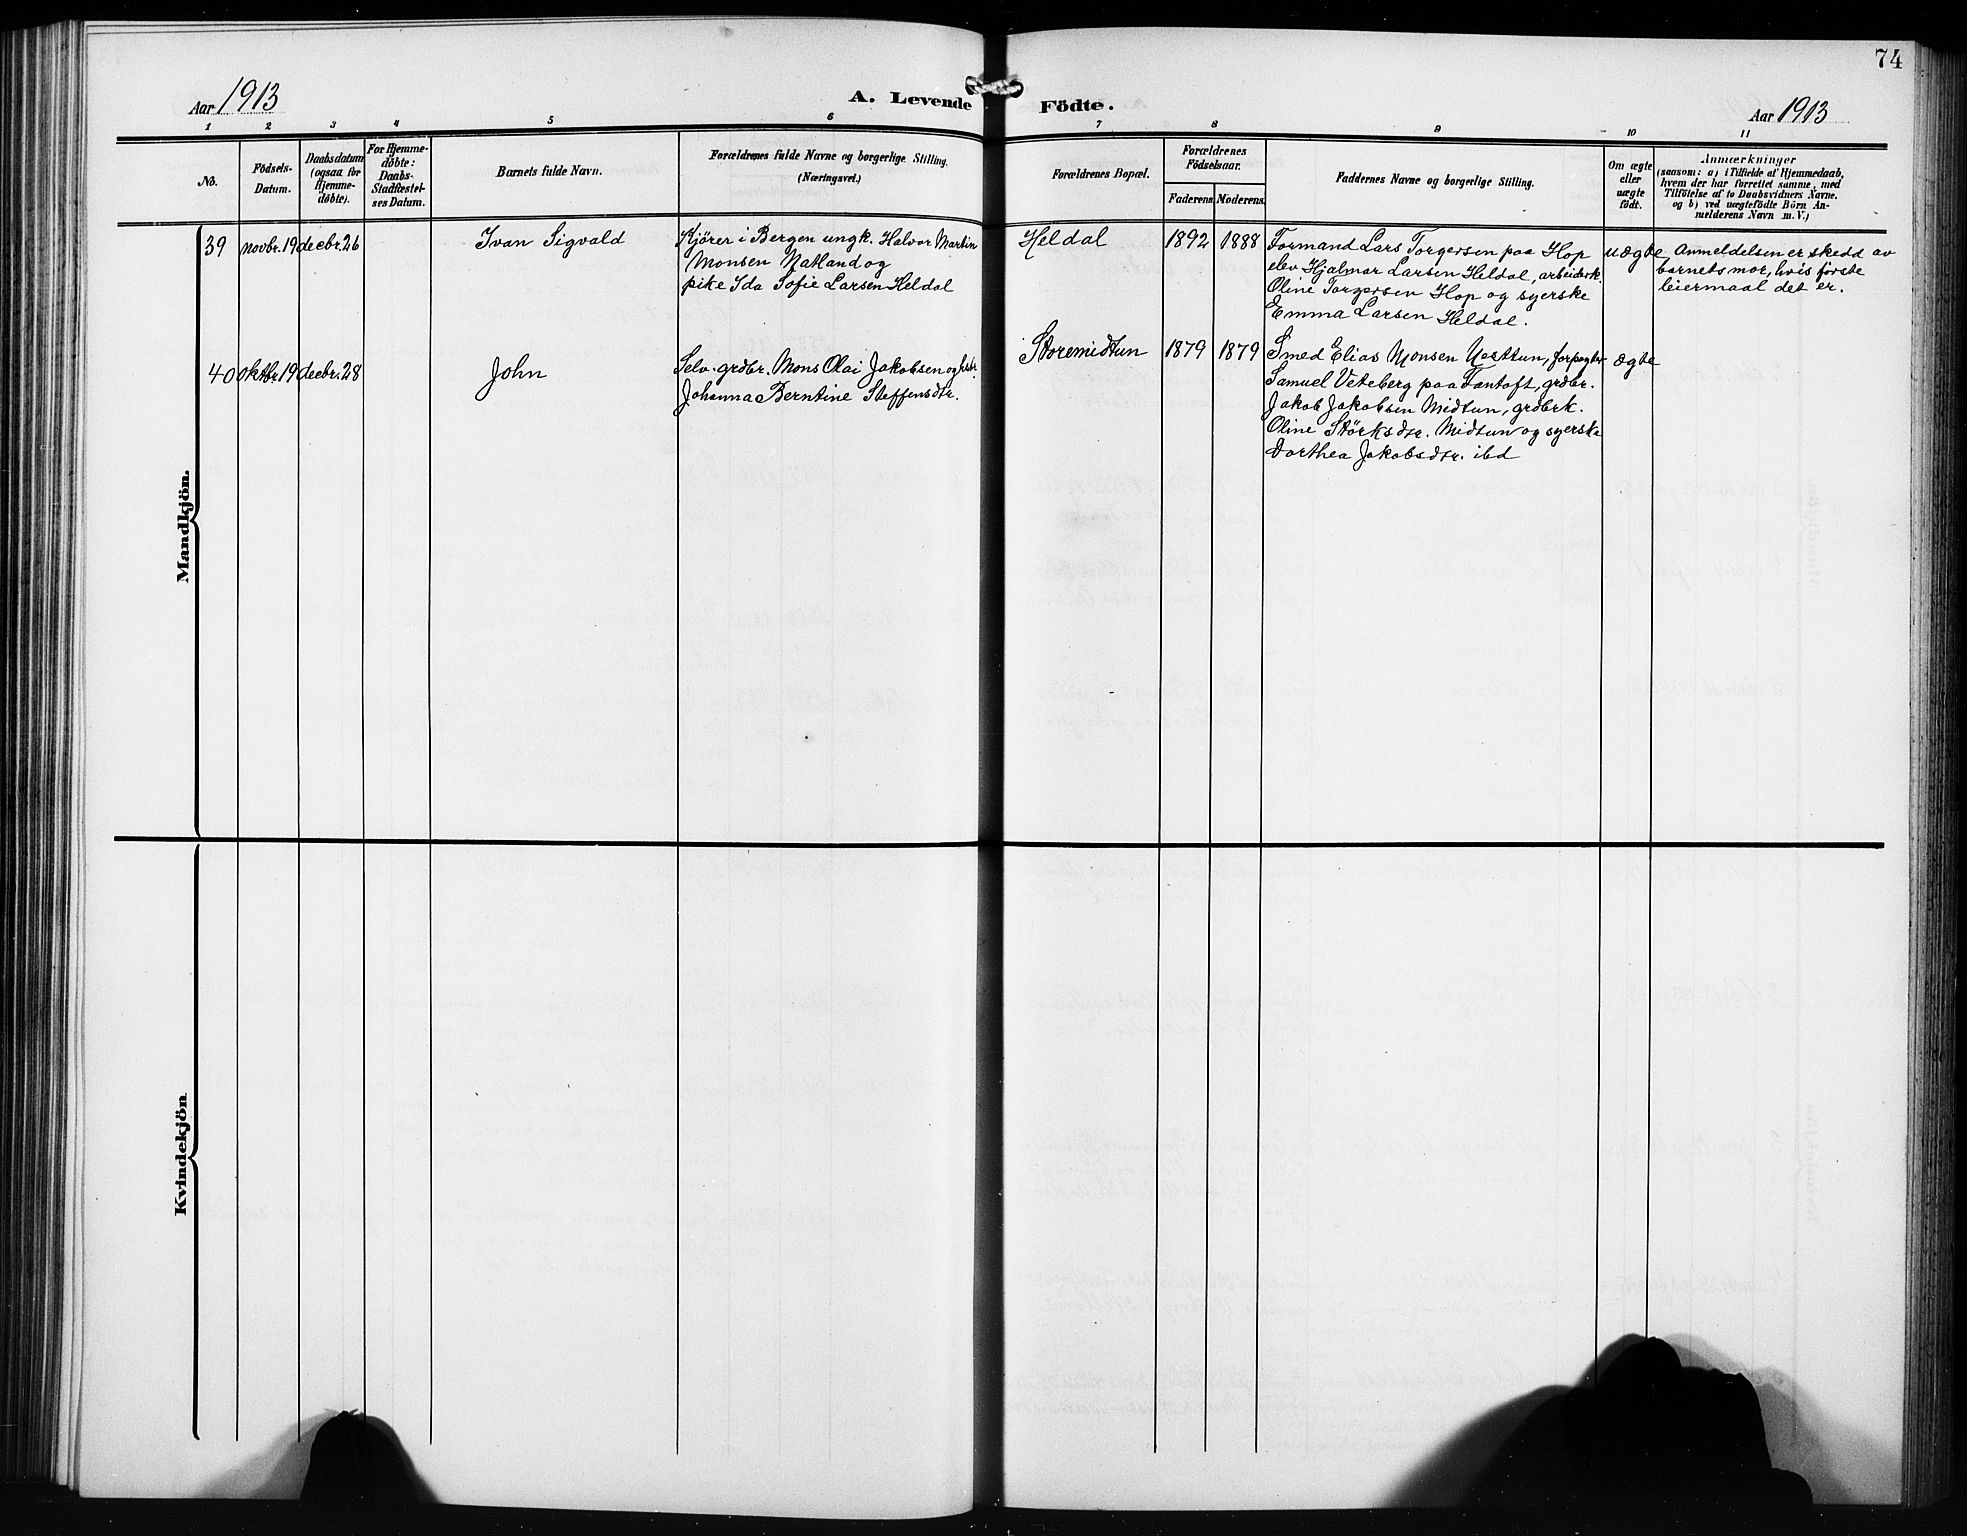 74
Aar 1913
A. Levende Födte.
Aar 1913
1 2 3 4 5 6 7 8 9 10 11
No.
Födsels-
Datum.
Daabsdatum
(ogsaa for
Hjemme-
döbte).
For Hjemme-
döbte:
Daabs-
Stadfæstel-
ses Datum.
Barnets fulde Navn.
Forældrenes fulde Navne og borgerlige Stilling.
(Næringsvei.)
Forældrenes Bopæl.
Forældrenes
Födselsaar.
Faderens.
Moderens.
Faddernes Navne og borgerlige Stilling.
Om ægte
eller
uægte
födt.
Anmærkninger
(saasom: a) i Tilfælde af Hjemmedaab,
hvem der har forrettet samme, med
Tilföielse af to Daabsvidners Navne.
og b) ved uægtefödte Börn An-
melderens Navn m.V.)
Mandkjön.
39 novbr. 19 decbr. 26 Ivan Sigvald
Kjører i Bergen ungk. Halvor Martin
Monsen Natland og
pike Ida Sofie Larsen Heldal
Heldal 1892 1888
Formand Lars Torgersen paa Hop
elev Hjalmar Larsen Heldal, arbeiderk.
Oline Torgersen Hop og syerske
Emma Larsen Heldal.
uægte
Anmeldelsen er skedd av
barnets mor, hvis første
leiermaal det er.
40 oktbr. 19 decbr. 28 John
Selv. grdbr. Mons Olai Jakobsen og hstr.
Johanna Berntine Steffensdtr.
Storemidtun 1879 1879
Smed Elias Monsen Nesttun, forpagter
Samuel Veteberg paa Fantoft, grdbr.
Jakob Jakobsen Midtun, grdbrk.
Oline Størksdtr. Midtun og syerske
Dorthea Jakobsdtr. ibd
ægte
Kvindekjön